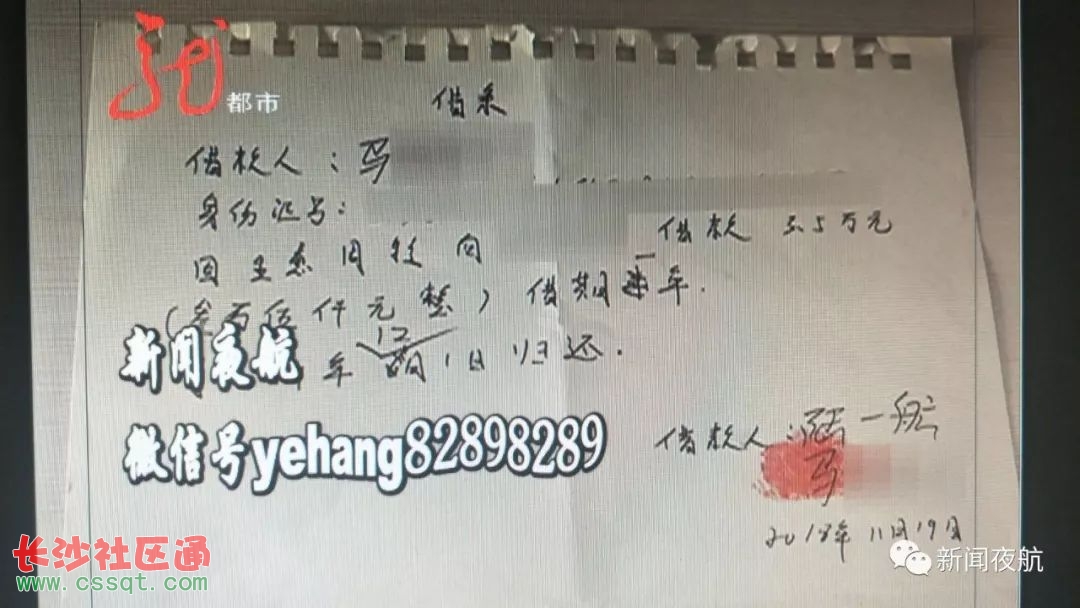 都市
借条
借款人：马
身份证号：
借款 3.5万元
因生意周转向
(叁万伍仟元整) 借期一年.
新闻夜航
年 12月1日归还.
微信号yehang82898289
借款人：
马
2018年11月19日
长沙社区通
www.cssqt.com
新闻夜航